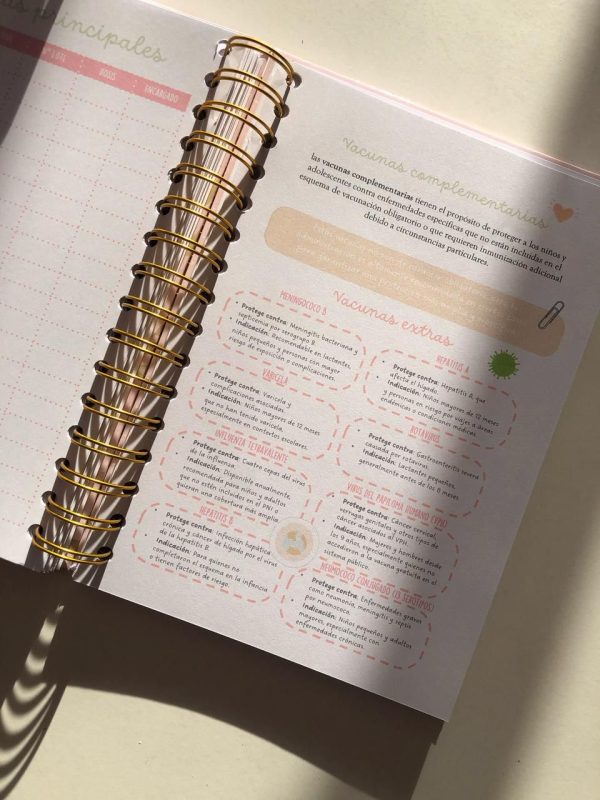 principales
N° LOTE
DOSIS
ENCARGADO
Vacunas complementarias
las vacunas complementarias tienen el propósito de proteger a los niños y
adolescentes contra enfermedades específicas que no están incluidas en el
esquema de vacunación obligatorio o que requieren inmunización adicional
debido a circunstancias particulares.
Vacunas extras
MENINGOCOCO B
• Protege contra: Meningitis bacteriana y
septicemia por serogrupo B.
• Indicación: Recomendable en lactantes,
niños pequeños y personas con mayor
riesgo de exposición o complicaciones.
VARICELA
• Protege contra: Varicela y
complicaciones asociadas.
• Indicación: Niños mayores de 12 meses
que no han tenido varicela,
especialmente en contextos escolares.
INFLUENZA TETRAVALENTE
• Protege contra: Cuatro cepas del virus
de la influenza.
• Indicación: Disponible anualmente,
recomendada para niños y adultos
que no estén incluidos en el PNI o
quieran una cobertura más amplia.
HEPATITIS B
• Protege contra: infección hepática
crónica y cáncer de hígado por el virus
de la hepatitis B.
• Indicación: Para quienes no
completaron el esquema en la infancia
o tienen factores de riesgo.
HEPATITIS A
• Protege contra: Hepatitis A, que
afecta el hígado.
• Indicación: Niños mayores de 12 meses
y personas en riesgo por viajes a áreas
endémicas o condiciones médicas.
ROTAVIRUS
• Protege contra: Gastroenteritis severa
causada por rotavirus.
• Indicación: Lactantes pequeños,
generalmente antes de los 8 meses.
VIRUS DEL PAPILOMA HUMANO (VPH)
• Protege contra: Cáncer cervical,
verrugas genitales y otros tipos de
cáncer asociados al VPH.
• Indicación: Mujeres y hombres desde
los 9 años, especialmente quienes no
accedieron a la vacuna gratuita en el
sistema público.
NEUMOCOCO CONJUGADO (13 SEROTIPOS)
• Protege contra: Enfermedades graves
como neumonía, meningitis y sepsis
por neumococo.
• Indicación: Niños pequeños y adultos
mayores, especialmente con
enfermedades crónicas.